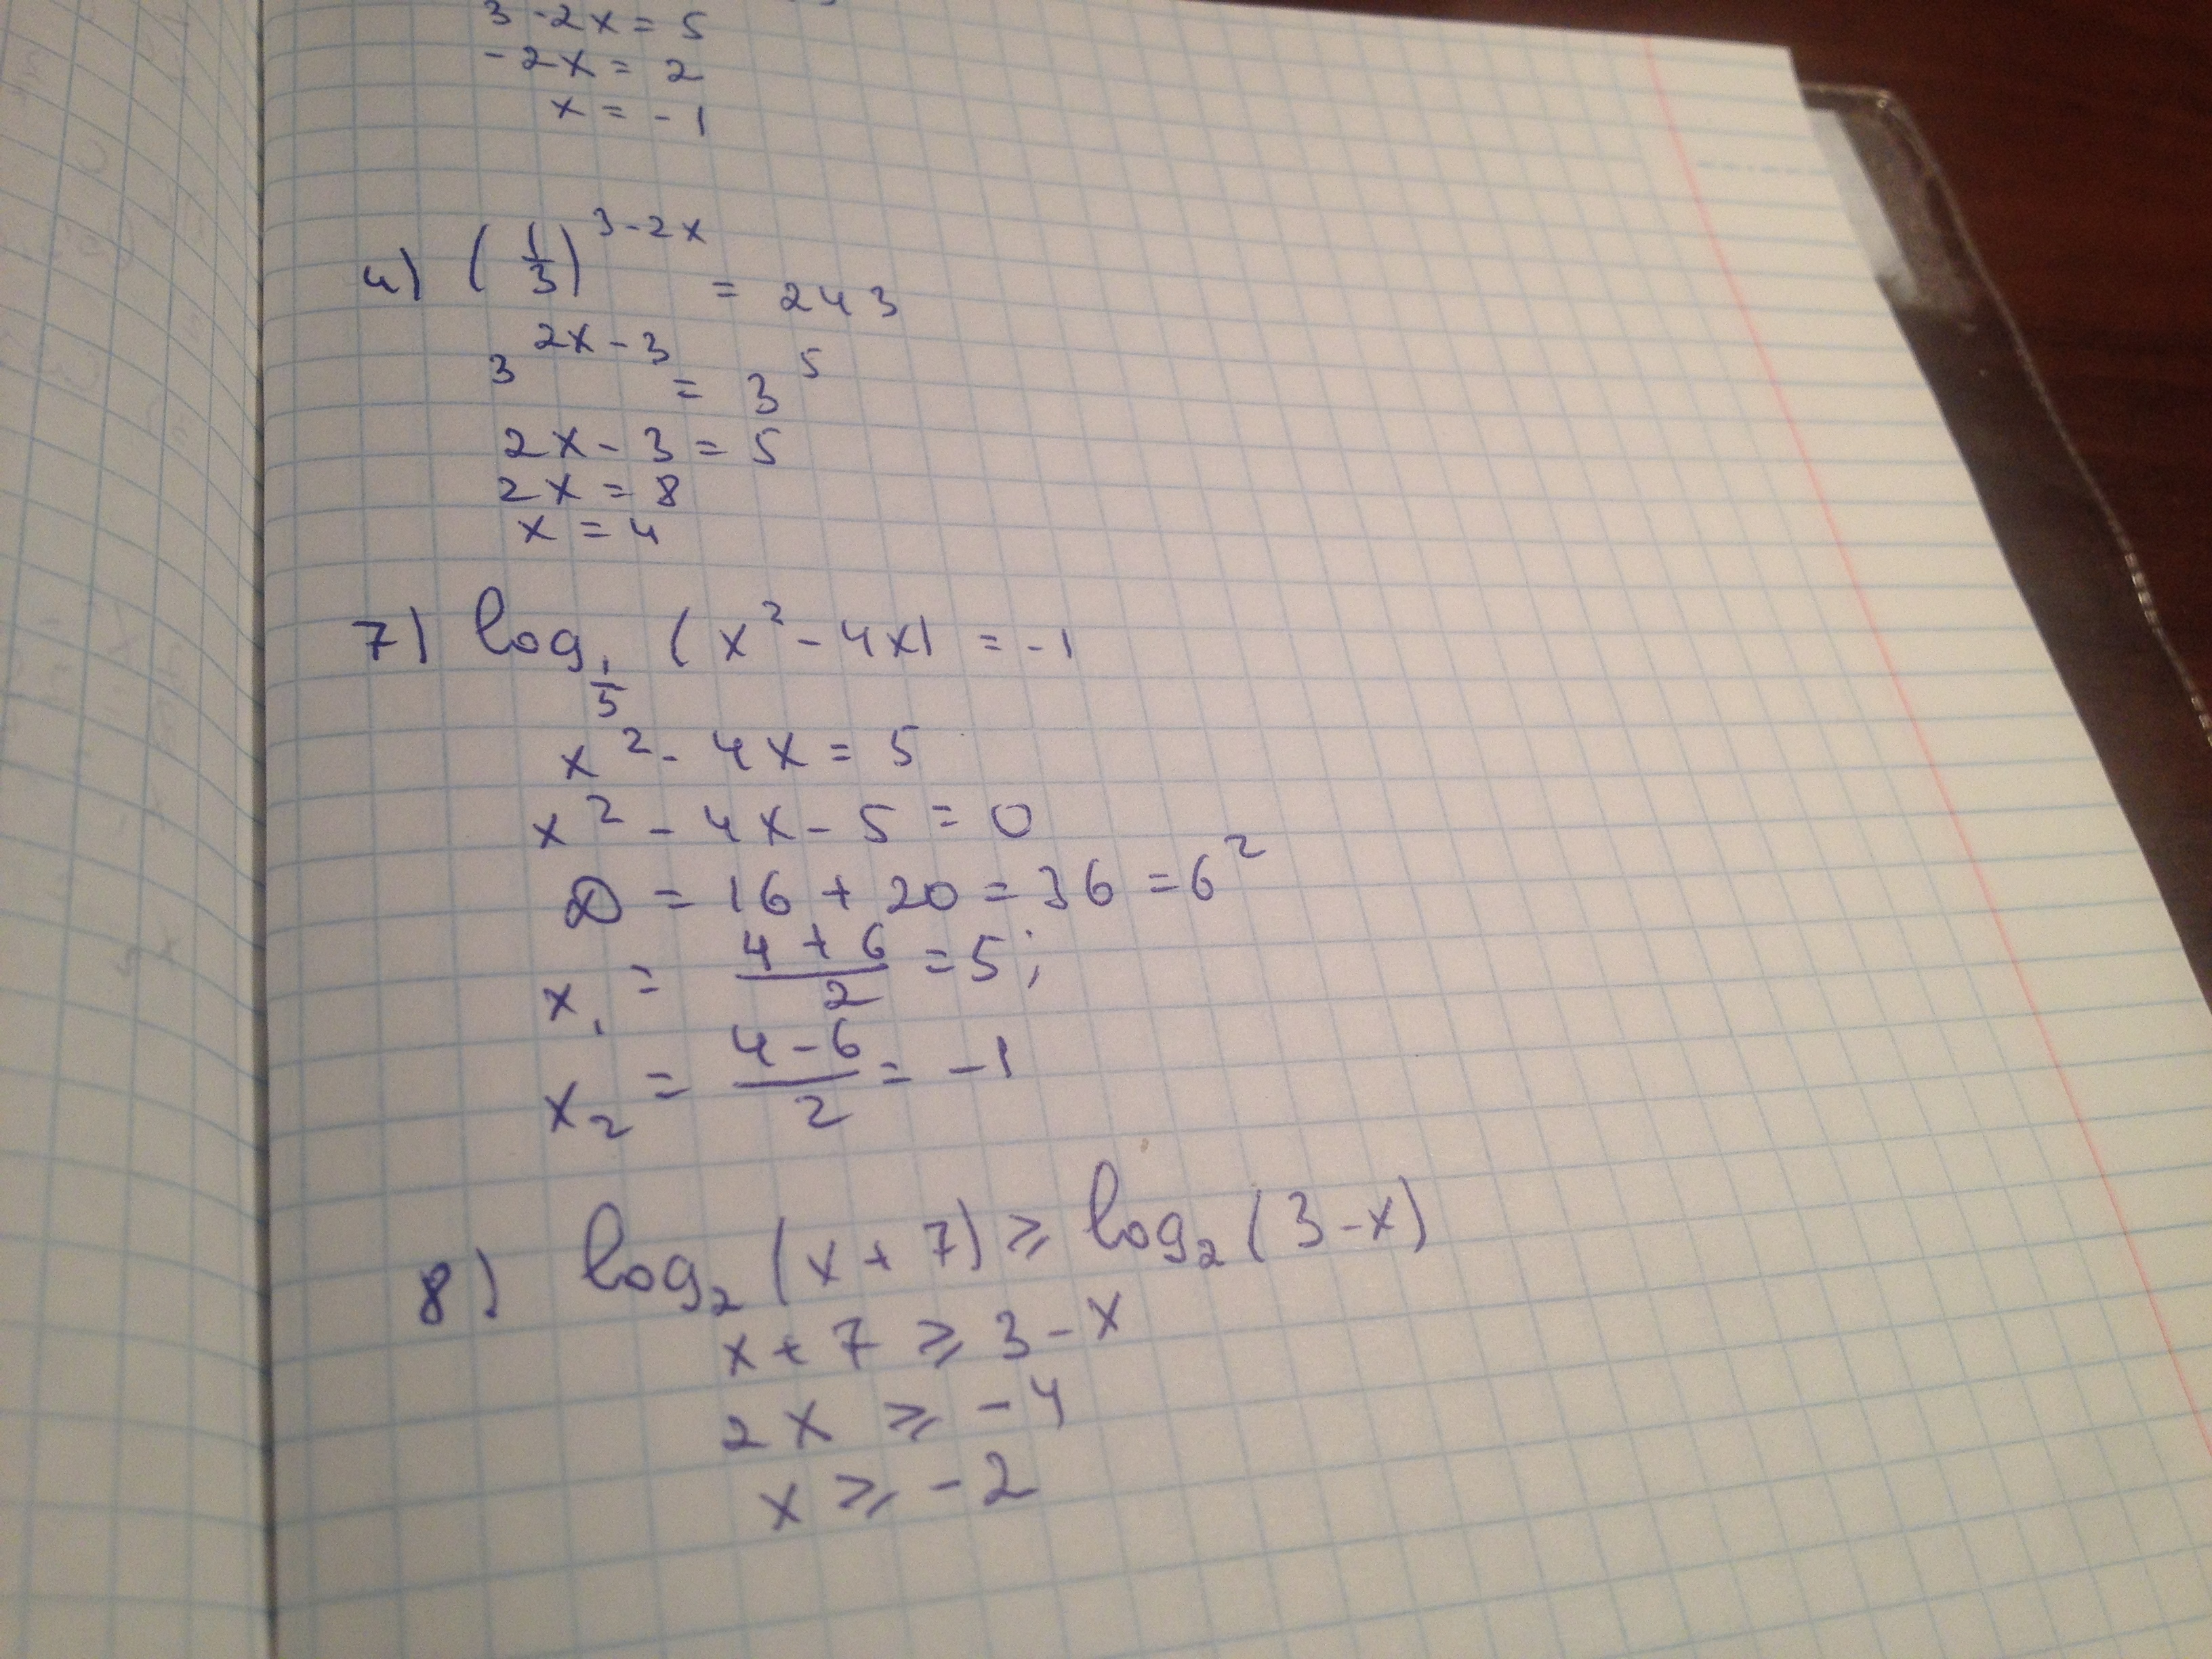 3-2x = 5
-2x = 2
x = -1
4) (1/3)^(3-2x) = 243
3^(2x-3) = 3^5
2x-3 = 5
2x = 8
x = 4
7) log_(1/5) (x²-4x) = -1
x² - 4x = 5
x² - 4x - 5 = 0
D = 16 + 20 = 36 = 6²
x₁ = (4+6)/2 = 5;
x₂ = (4-6)/2 = -1
8) log₂(x+7) ⩾ log₂(3-x)
x+7 ⩾ 3-x
2x ⩾ -4
x ⩾ -2